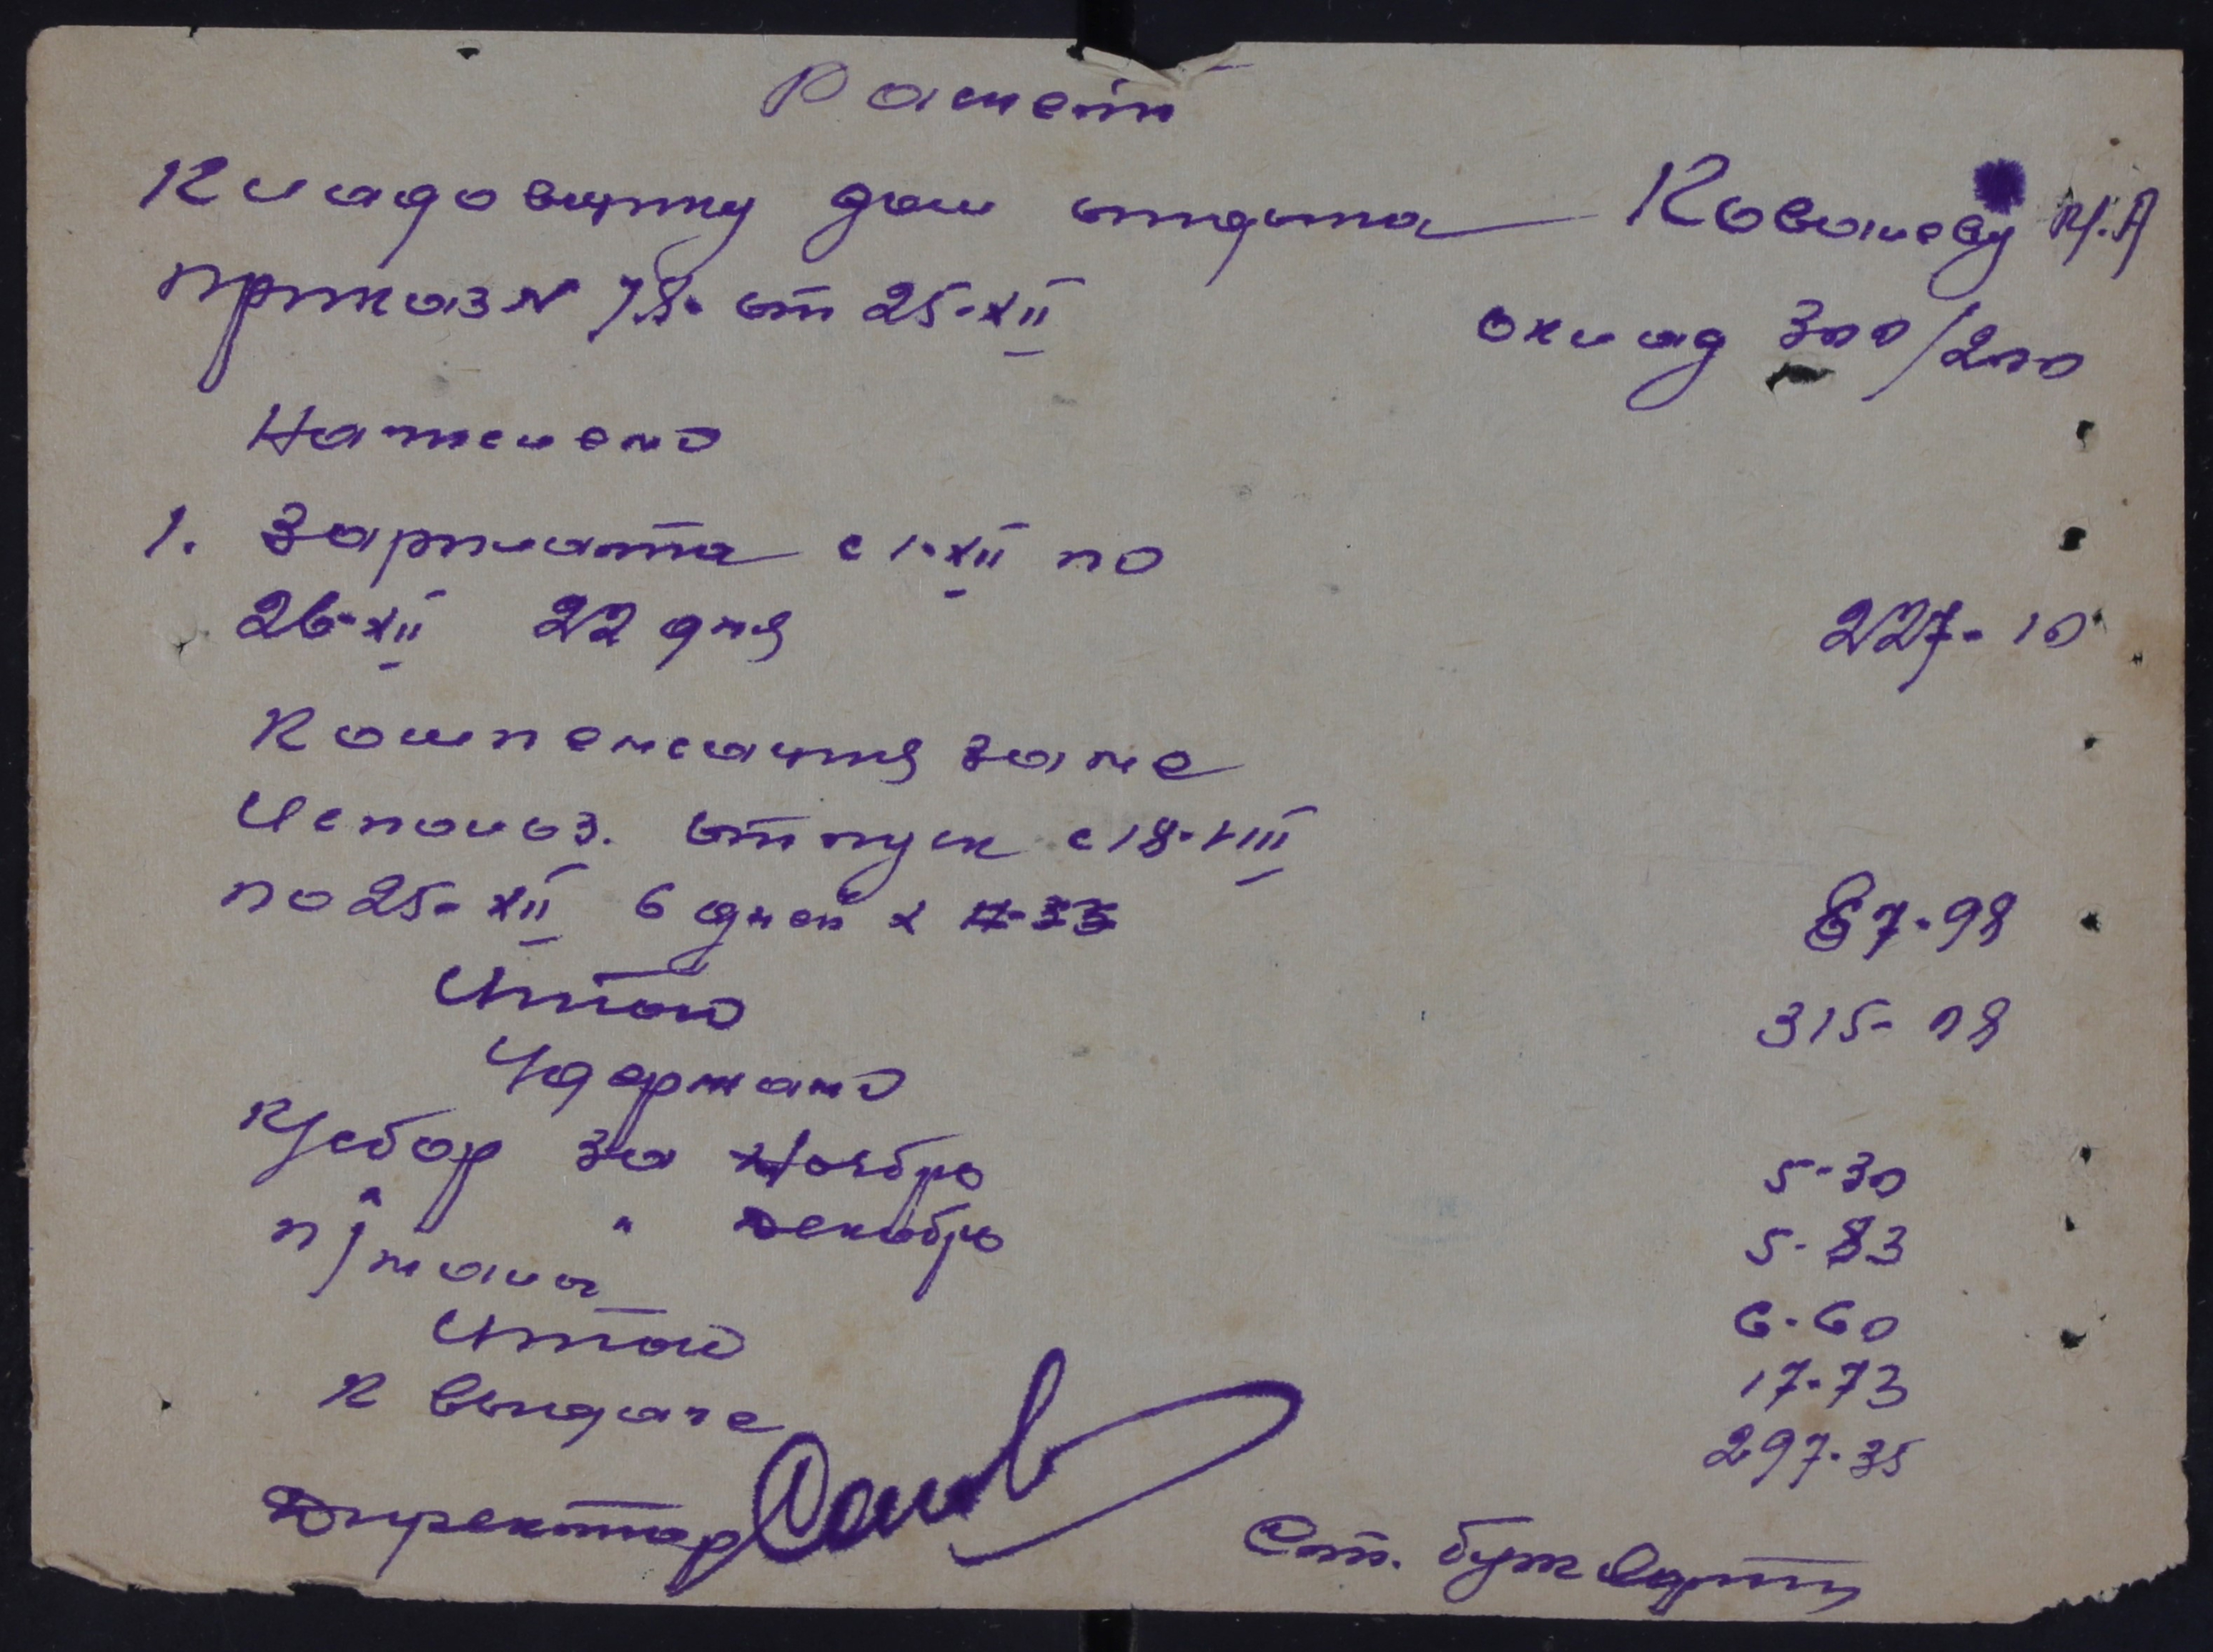 Расчет
Кладовщику дом отдыха Ковалеву И.А
приказ N 78 от 25-XII
оклад 300/200
Начислено
1. Зарплата с 1-XII по
26-XII 22 дня 227-10
Компенсация за не
Использ. отпуск с 18-VIII
по 25-XII 6 дней х 87-98
Итого 315-08
Удержано
К/сбор за Ноябрь 5-30
" " декабрь 5-83
п/налог 6-60
Итого 17-73
К выдаче 297-35
Директор
Ст. бух